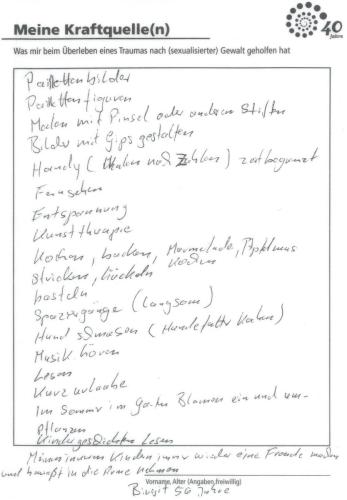 Meine Kraftquelle(n)
40
Jahre
Was mir beim Überleben eines Traumas nach (sexualisierter) Gewalt geholfen hat
Paillettenbilder
Paillettenfiguren
Malen mit Pinsel oder anderen Stiften
Bilder mit Gips gestalten
Handy (Malen nach Zahlen) zeitbegrenzt
Fernsehen
Entspannung
Kunsttherapie
Kochen, backen, Marmelade, Apfelmus
kochen
stricken, häckeln
basteln
Spaziergänge (langsam)
Hund (Hundefutter kochen)
Musik hören
Lesen
Kurzurlaube
Im Sommer im Garten Blumen ein und um-
pflanzen
Kindergeschichten lesen
Meinem inneren Kindern immer wieder eine Freude machen
und bewußt in die Arme nehmen
Vorname, Alter (Angaben freiwillig)
Birgit 56 Jahre